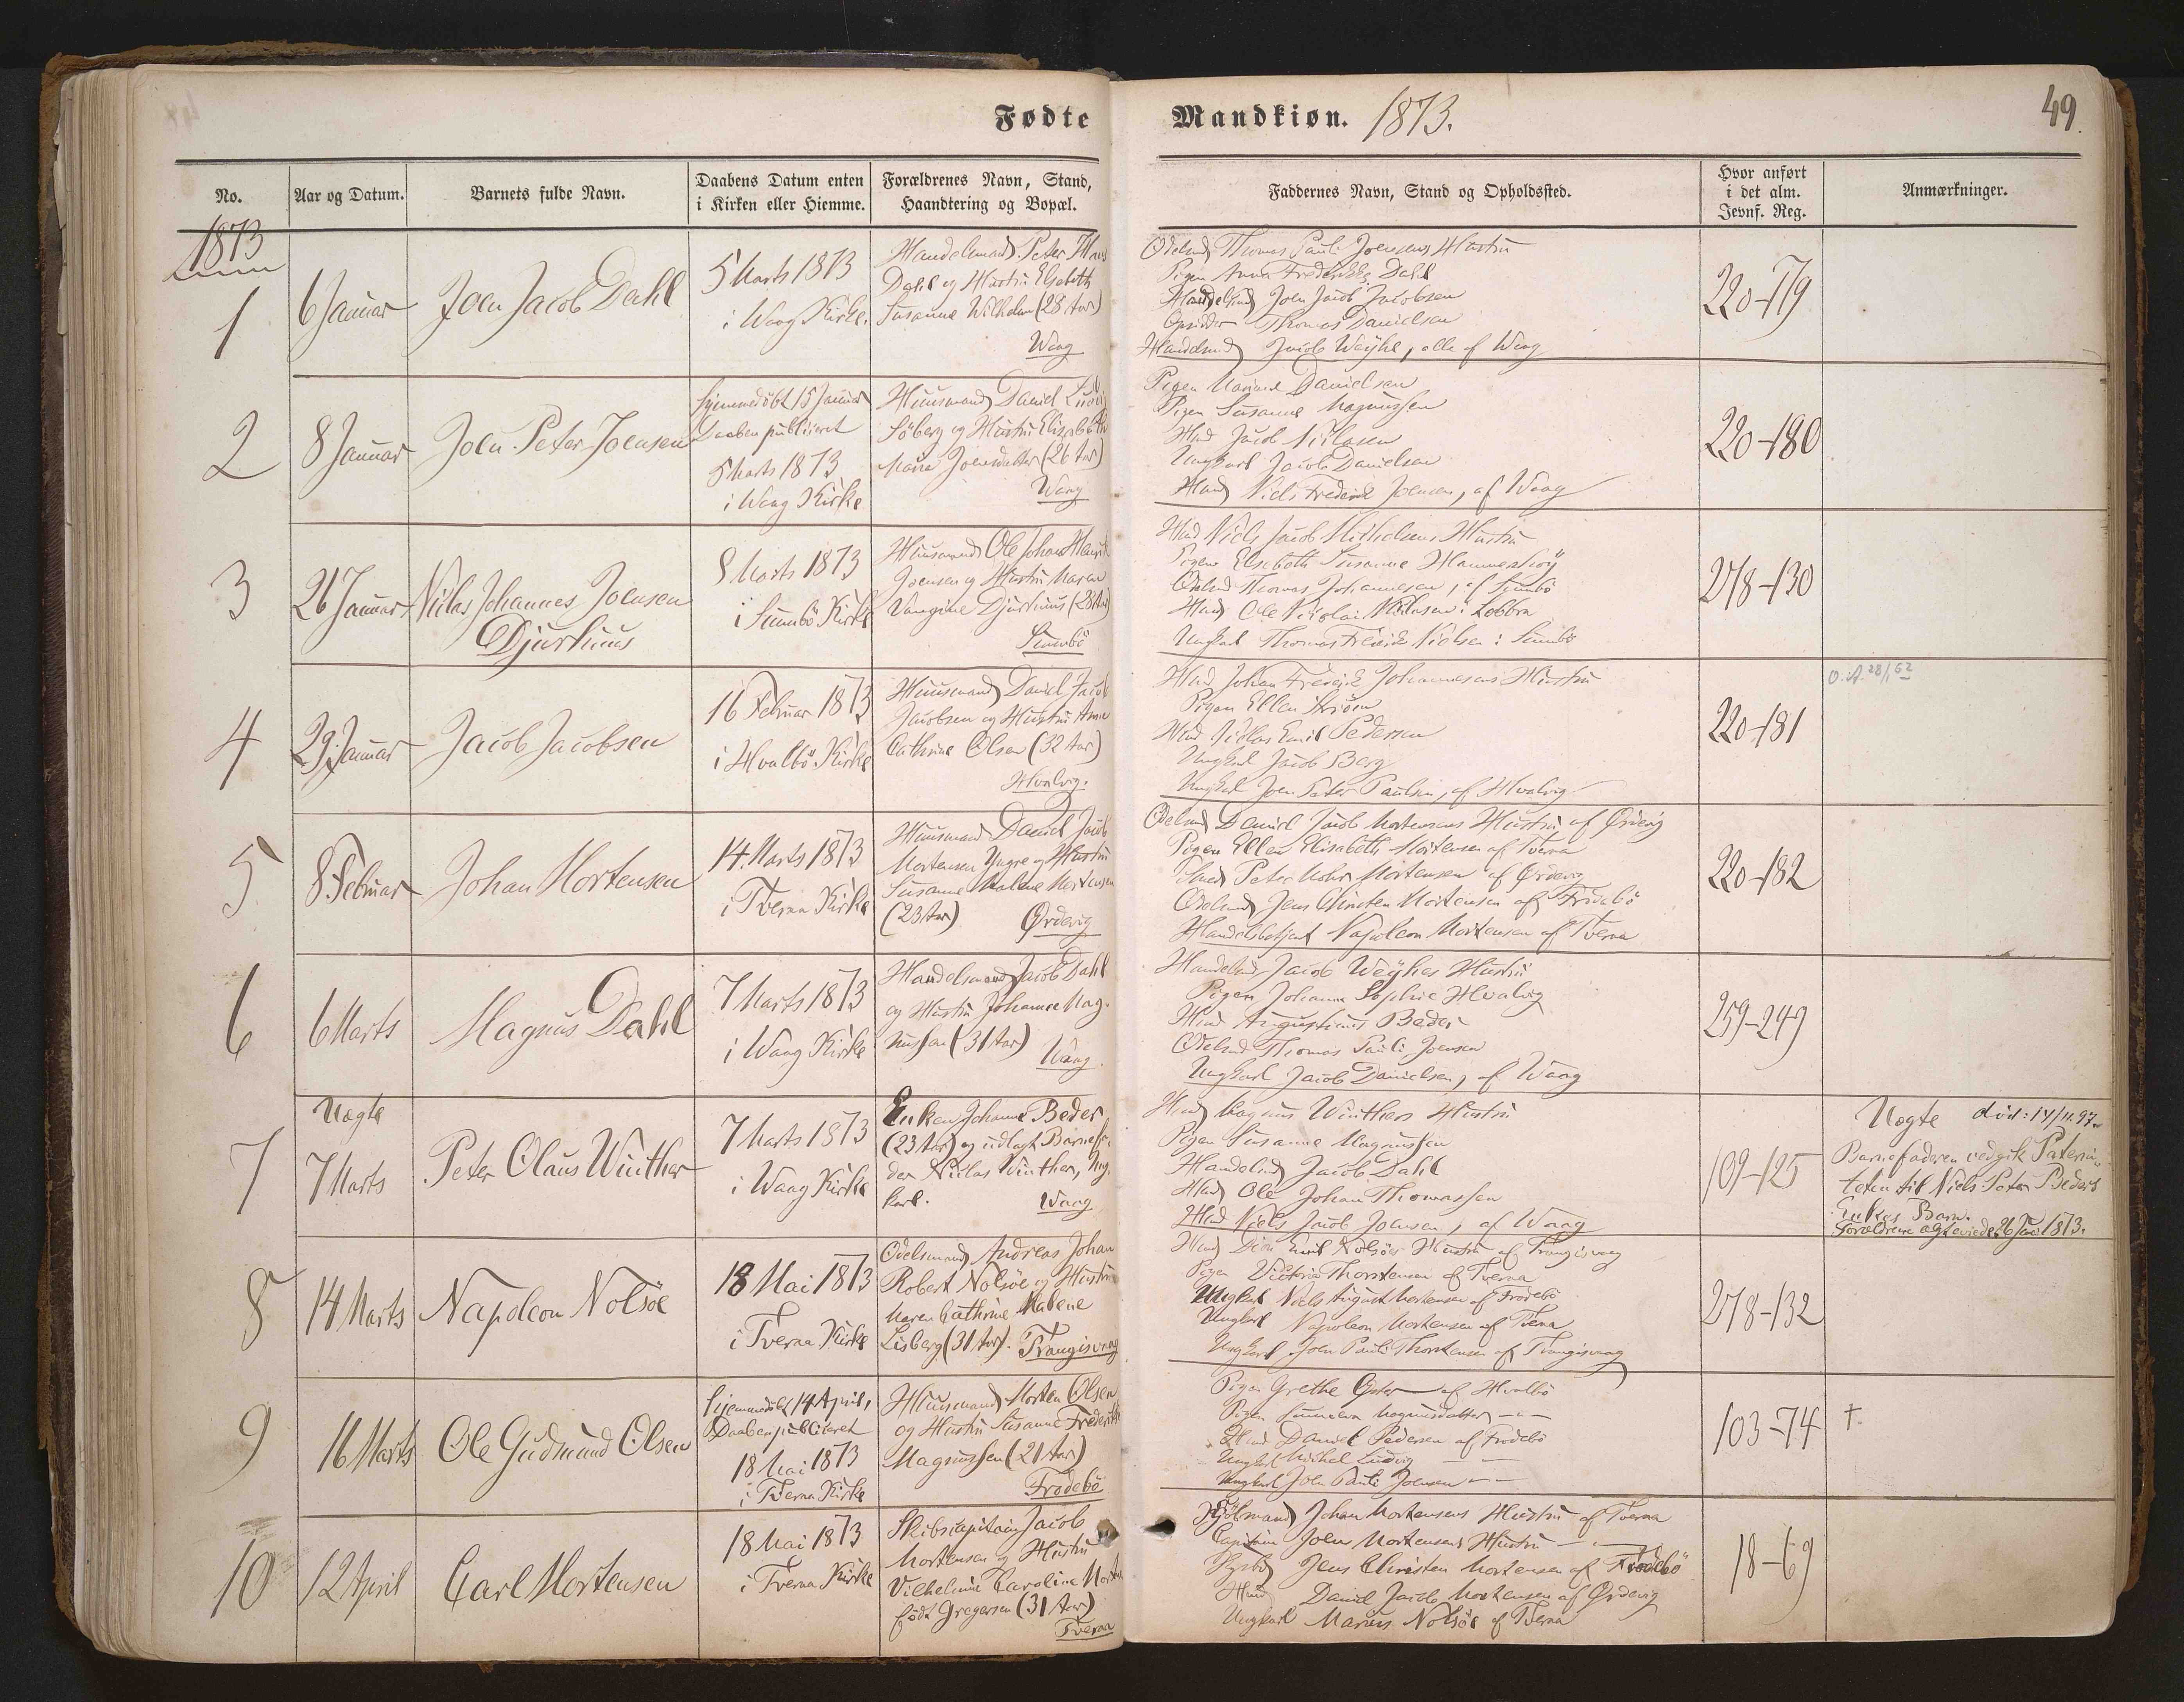 Fødte Mandkiøn. 1873.
49.
No.
Aar og Datum.
Barnets fulde Navn.
Daabens Datum enten
i Kirken eller Hiemme.
Forældrenes Navn, Stand,
Haandtering og Bopæl.
Faddernes Navn, Stand og Opholdssted.
Hvor anført
i det alm.
Jevnf. Reg.
Anmærkninger.
1873
1
6 Januar
Joen Jacob Dahl
5 Marts 1873
i Waag Kirke.
Handelsmand Peter
Dahl og Hustru Elsebeth
Susanne Wilhelm (28 Aar)
Waag
Odelsmd Thomas Pauli Joensens Hustru
Pigen Anna Fredrikke Dahl
Handelsmd Joen Jacob Jacobsen
Opsidder Thomas Danielsen
Handelsmd Jacob Weyhe, alle af Waag
220-179
2
8 Januar
Joen Peter Joensen
Hjemmedöbt 15 Januar
Daaben publiceret
5 Marts 1873
i Waag Kirke
Huusmand Daniel Ludvig
Söberg og Hustru Elisabeth
Maria Joensdatter (26 Aar)
Waag
Pigen Mariane Danielsen
Pigen Susanne Magnussen
Hmd Jacob Niclasen
Ungkarl Jacob Danielsen
Hmd Niels Frederik Joensen, af Waag
220-180
3
26 Januar
Niclas Johannes Joensen
Djurhuus
9 Marts 1873
i Sumbö Kirke
Huusmand Ole Johan
Joensen og Hustru Maren
Djurhuus (28 Aar)
Sumbö
Hmd Niels Jacob Michelsens Hustru
Pigen Elsebeth Susanne Hammershöy
Odelsmd Thomas Johannesen, af Sumbö
Hmd Ole Nicolai Niclasen i Lobbra
Ungkarl Thomas Frederik Nielsen i Sumbö
278-130
4
29 Januar
Jacob Jacobsen
16 Februar 1873
i Hvalbö Kirke
Huusmand Daniel Jacob
Jacobsen og Hustru Anne
Cathrine Olsen (32 Aar)
Hvalvig.
Hmd Johan Frederik Johannesens Hustru
Pigen Ellen
Hmd Niclas Emil Pedersen
Ungkarl Jacob Berg
Ungkarl Joen Peter Paulsen, af Hvalvig
220-181
D.A. 28/1 62
5
8 Februar
Johan Mortensen
14. Marts 1873
i Tveraa Kirke
Huusmand Daniel Jacob
Mortensen Yngre og Hustru
Susanne Malene Mortensen
(23 Aar) Ørdevig
Odelsmd Daniel Jacob Mortensens Hustru af Ørdevig
Pigen Ellen Elisabeth Mortensen af Tveraa
Peter Mohr Mortensen af Ørdevig
Odelsmd Jens Christen Mortensen af Frodebö
Handelsbetjent Napoleon Mortensen af Tveraa
220-182
6
6 Marts
Magnus Dahl
7 Marts 1873
i Waag Kirke
Handelsmand Jacob Dahl
og Hustru Johanne Mag-
nussen (31 Aar)
Waag
Handelsmd Jacob Weyhes Hustru
Pigen Johanne Sophie Hvalvig
Hmd Augustinus Beder
Odelsmd Thomas Pauli Joensen
Ungkarl Jacob Danielsen, af Waag
259-249
7
Uægte
7 Marts
Peter Olaus Winther
7 Marts 1873
i Waag Kirke
Enken Johanne Beder
(23 Aar) og udlagt Barnefa-
der Niclas Winther, Ung-
karl.
Waag
Hmd Magnus Winthers Hustru
Pigen Susanne Magnussen
Handelsmd Jacob Dahl
Hmd Ole Johan Thomassen
Hmd Niels Jacob Joensen, af Waag
109-125
Uægte död: 14/11 97.
Barnefaderen vedgik Paterni-
teten til Niels Peter Beders
Enkes Barn.
Forældrene ægteviede 26 Juni 1873.
8
14 Marts
Napoleon Nolsöe
18 Mai 1873
i Tveraa Kirke
Odelsmand Andreas Johan
Robert Nolsöe og Hustru
Maren Cathrine Malene
Lisberg (31 Aar). Trangisvaag
Hmd Emil Nolsöes Hustru af Trangisvaag
Pigen Victoria Thorstensen af Tveraa
Ungkarl Niels August Mortensen af Frodebö
Ungkarl Napoleon Mortensen af Tveraa
Ungkarl Joen Pauli Thorstensen af Trangisvaag
278-132
9
16 Marts
Ole Gudmund Olsen
Hjemmedöbt 14 April,
Daaben publiceret
18 Mai 1873
i Tveraa Kirke
Huusmand Morten Olsen
og Hustru Susanne Frederikke
Magnussen (21 Aar)
Frodebö
Pigen Grethe af Hvalbö
Pigen Magnusdatter - " -
Hmd Daniel Pedersen af Frodebö
Ungkarl Michel Ludvig - " -
Ungkarl Joen Pauli Joensen - " -
103-74
†
10
12 April
Carl Mortensen
18 Mai 1873
i Tveraa Kirke
Skibscapitain Jacob
Mortensen og Hustru
Vilhelmine Caroline
född Gregersen (31 Aar)
Tveraa
Kjöbmand Johan Mortensens Hustru af Tveraa
Capitain Joen Mortensens Hustru - " -
Jens Christen Mortensen af Frodebö
Hmd Daniel Jacob Mortensen af Ørdevig
Ungkarl Marius Nolsöe af Tveraa
18-69